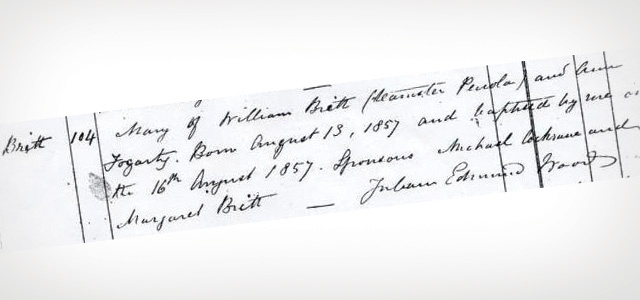 Britt 104 Mary of William Britt (Teamster Penola) and Ann
Fogarty. Born August 13, 1857 and baptised by me on
the 16th August 1857. Sponsors Michael Cochrane and
Margaret Britt — Julian Edmund Woods